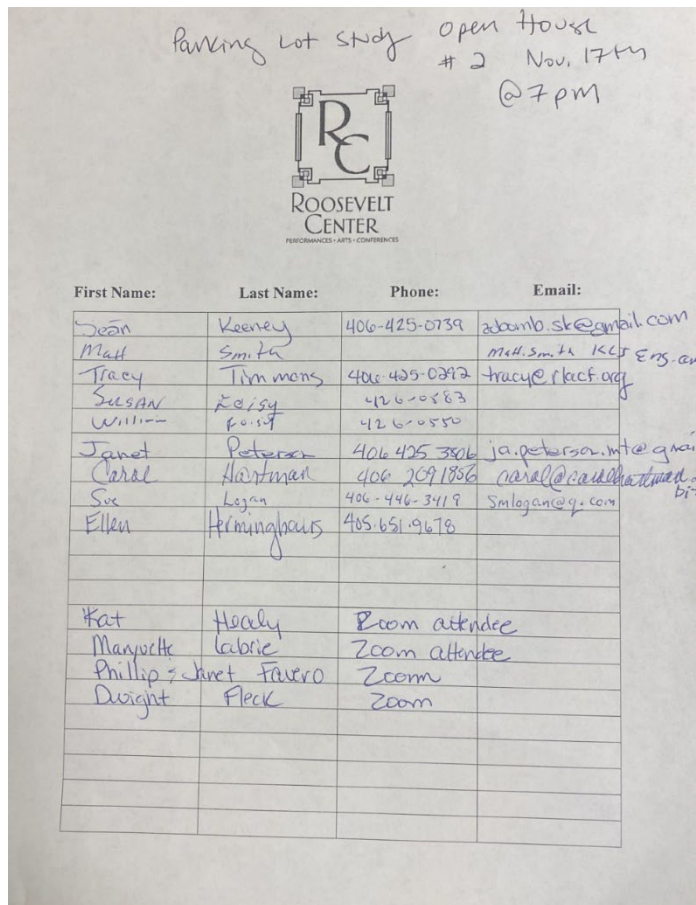 Parking Lot Study Open House
# 2 Nov. 17th
@7pm
RC
ROOSEVELT
CENTER
PERFORMANCES • ARTS • CONFERENCES
First Name: Last Name: Phone: Email:
Sean Keeney 406-425-0739
Matt Smith Matt.Smith KLJ Eng.
Tracy Timmons 406-425-0292 tracy@rlacf.org
Susan Foisy 426-0583
William Foisy 426-0550
Janet Peterson 406 425 3806 ja.peterson.mt@gmai
Carol Hartman 406 2091856 carol@carolhartman.
Sue Logan 406-446-3419 Smlogan@q.com
Ellen Herminghaus 405.651.9678
Kat Healy Zoom attendee
Labrie Zoom attendee
Phillip & Janet Favero Zoom
Dwight Fleck Zoom